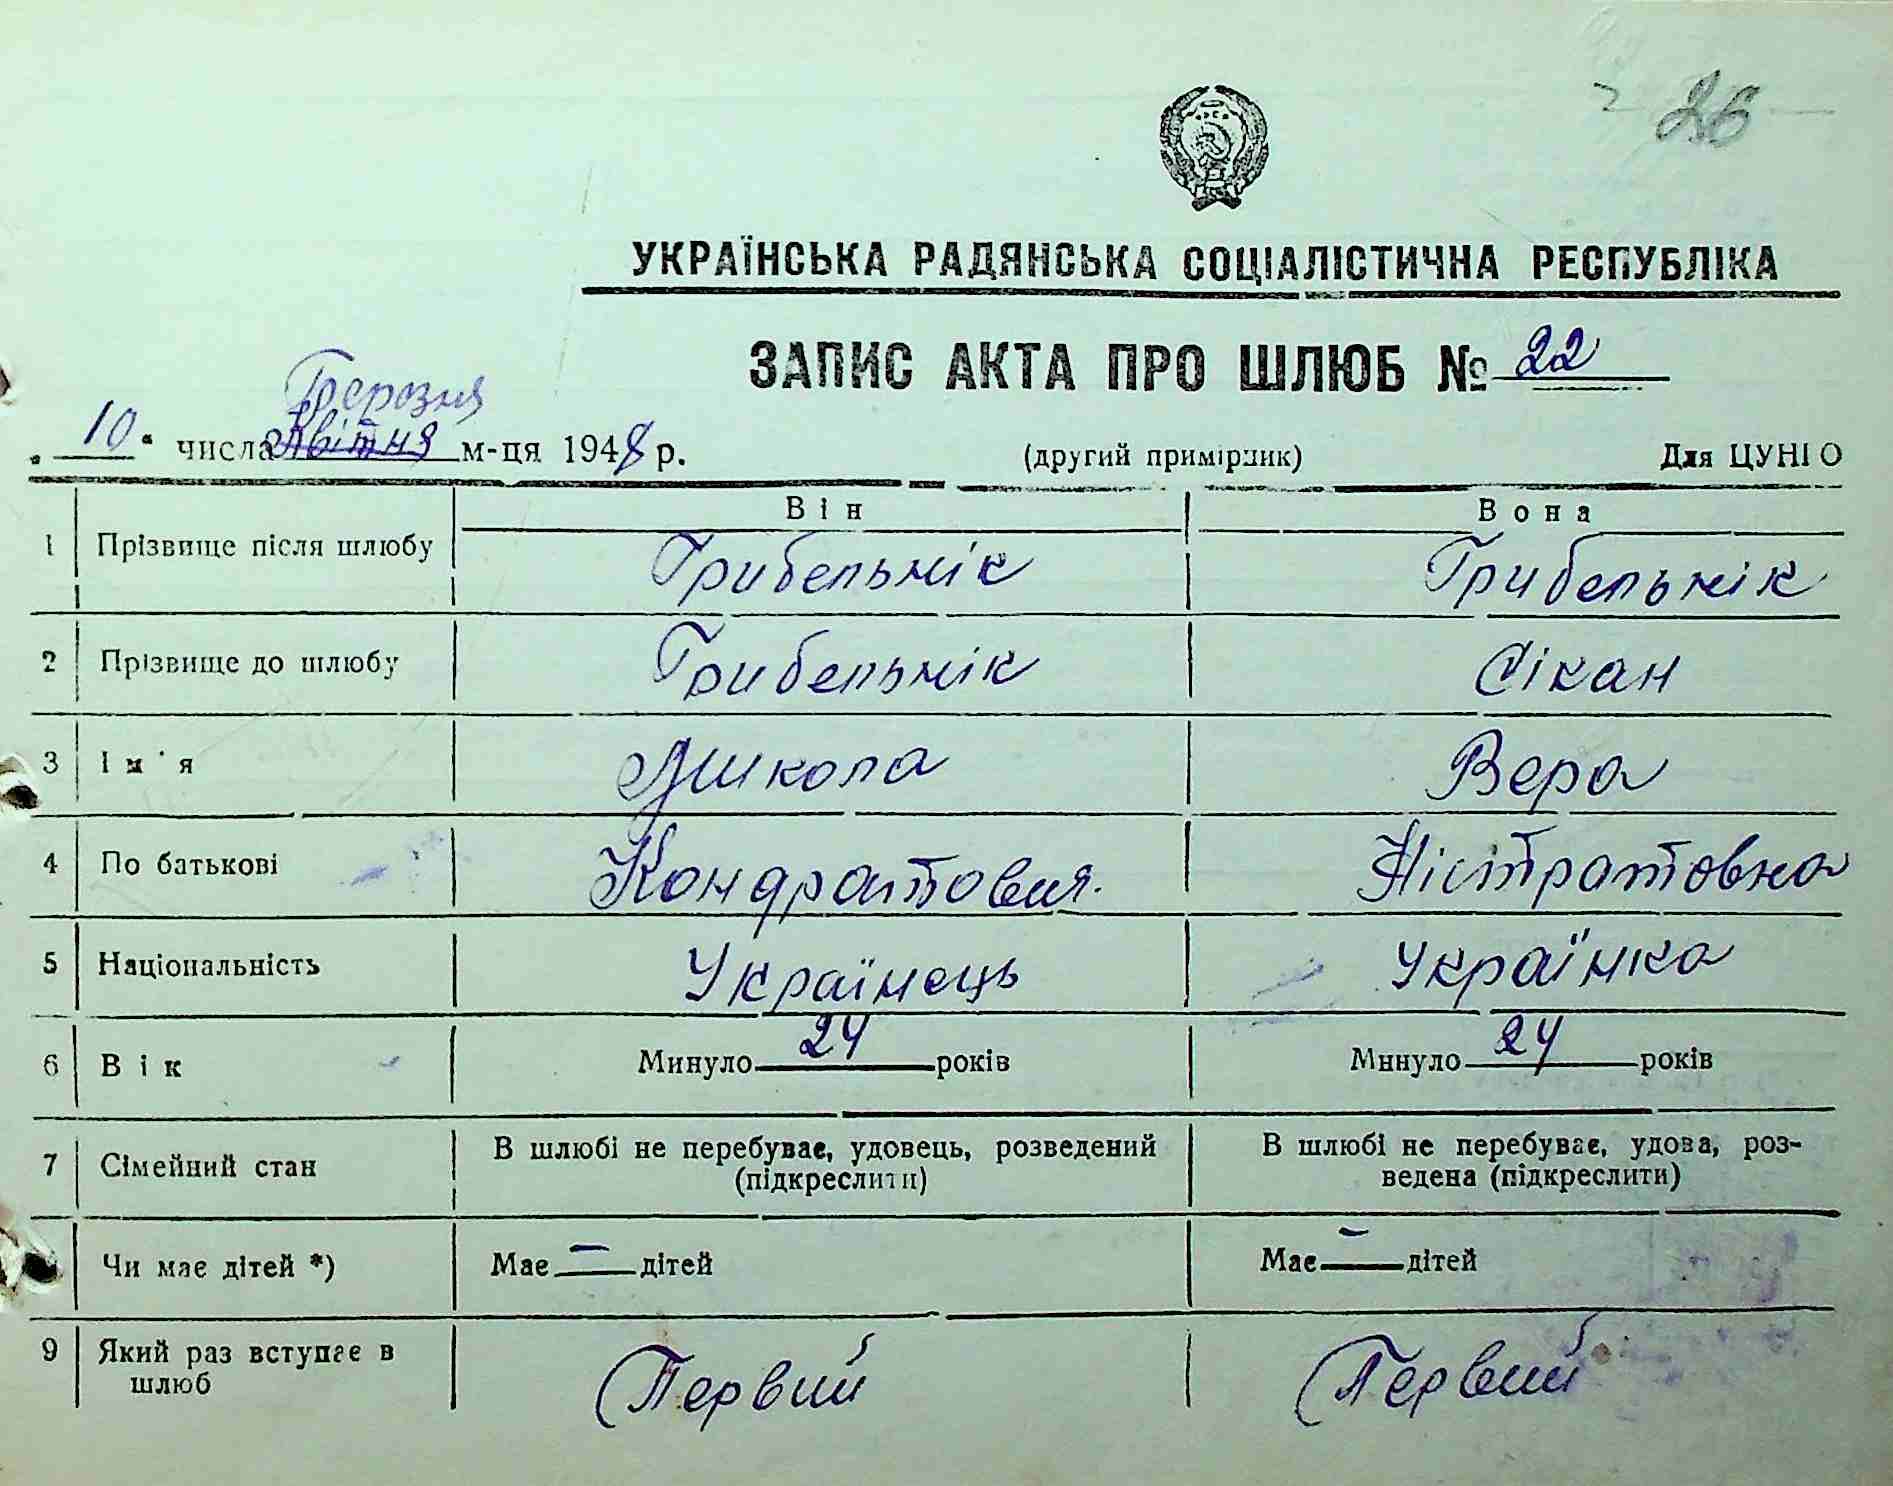 26
УКРАЇНСЬКА РАДЯНСЬКА СОЦІАЛІСТИЧНА РЕСПУБЛІКА
ЗАПИС АКТА ПРО ШЛЮБ № 22
Березня
„10“ числа Квітня м-ця 1948 р. (другий примірник) Для ЦУНГО
Він Вона
1 Прізвище після шлюбу Грибельнік Грибельнік
2 Прізвище до шлюбу Грибельнік Сікан
3 Ім'я Микола Вера
4 По батькові Кондратовия. Ністратовна
5 Національність Українець Українка
6 Вік Минуло 24 років Минуло 24 років
7 Сімейний стан В шлюбі не перебуває, удовець, розведений (підкреслити) В шлюбі не перебуває, удова, роз-
ведена (підкреслити)
Чи має дітей *) Має — дітей Має — дітей
9 Який раз вступає в шлюб Первий Первий